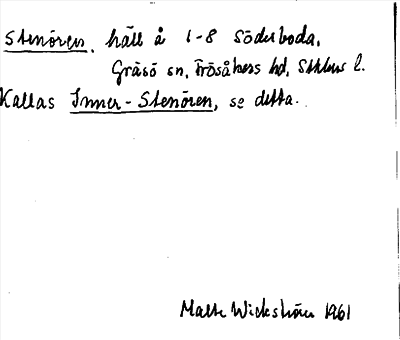 Stenören, häll å 1-8 Söderboda,
Gräsö sn, Frösåkers hd, Sthlms l.
Kallas Inner-Stenören, se detta.
Malte Wickström 1961